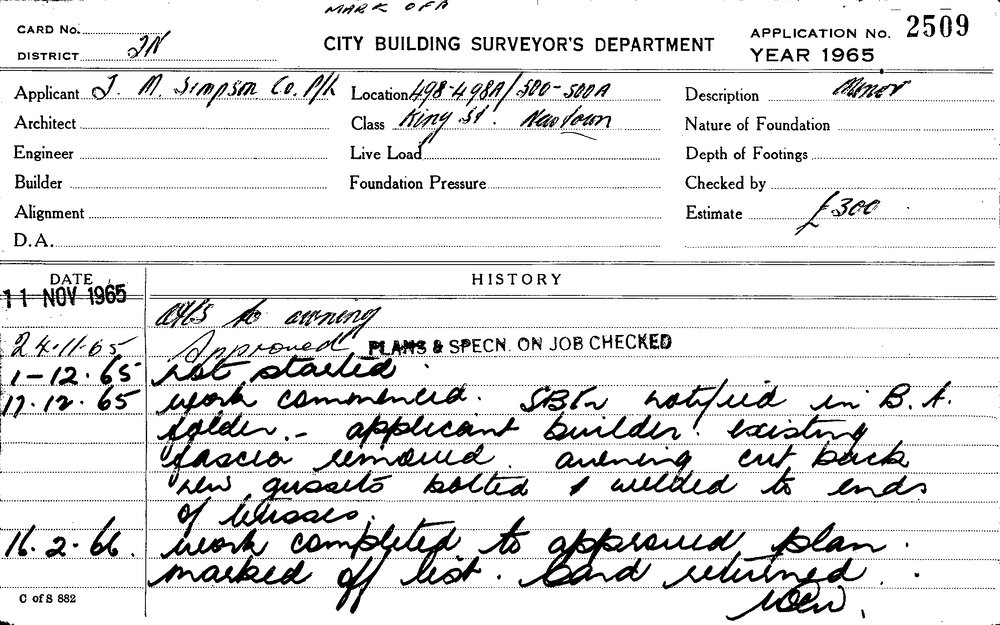 MARK OFF
CARD No.
DISTRICT 2N
CITY BUILDING SURVEYOR'S DEPARTMENT
APPLICATION No. 2509
YEAR 1965
Applicant J. M. Simpson Co. P/L
Location 498-498A/500-500A
Description Minor
Architect
Class King St. Newtown
Nature of Foundation
Engineer
Live Load
Depth of Footings
Builder
Foundation Pressure
Checked by
Alignment
Estimate £300
D.A.
DATE
HISTORY
11 NOV 1965
to awning
24.11.65 Approved PLANS & SPECN. ON JOB CHECKED
1-12.65 not started.
17.12.65 work commenced. notified in B.A.
folder. - applicant builder. existing
fascia removed. awning cut back
new gussets bolted & welded to ends
of trusses.
16.2.66. work completed to approved plan.
marked off list. Card returned.
C of S 882